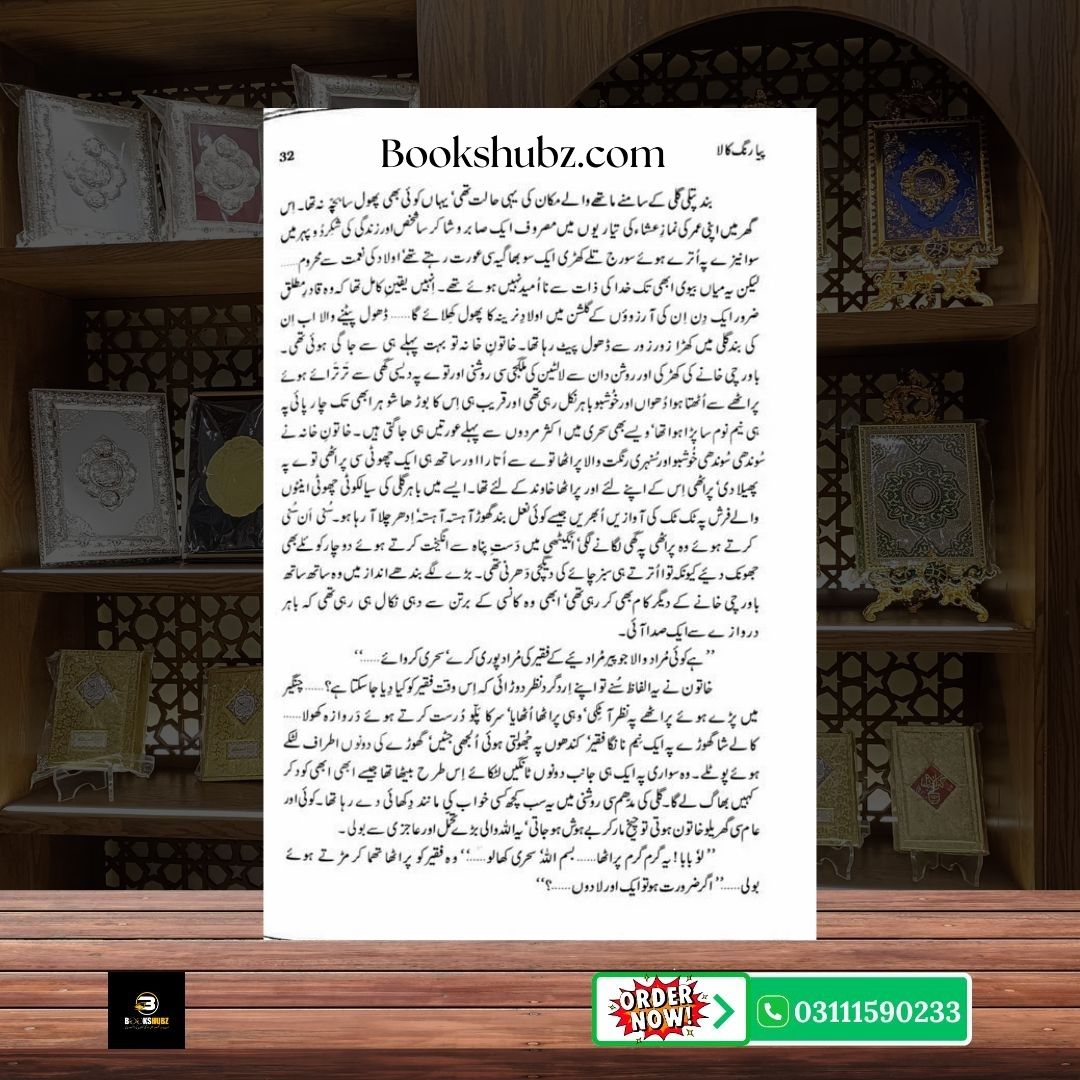 32 Bookshubz.com پیا رنگ کالا
بند پتلی گلی کے سامنے ماتھے والے مکان کی یہی حالت تھی‘ یہاں کوئی بھی پھول سا بچہ نہ تھا۔ اِس
گھر میں اپنی عمر کی نمازِ عشاء کی تیاریوں میں مصروف ایک صابر و شاکر سا شخص اور زندگی کی شِکر دوپہر میں
سوا نیزے پہ اُترے ہوئے سورج تلے کھڑی ایک سوبھاگیہ سی عورت رہتے تھے‘ اولاد کی نعمت سے محروم......
لیکن یہ میاں بیوی ابھی تک خدا کی ذات سے نااُمید نہیں ہوئے تھے۔ اِنہیں یقینِ کامل تھا کہ وہ قادرِ مطلق
ضرور ایک دِن اِن کی آرزوؤں کے گلشن میں اولادِ نرینہ کا پھول کھلائے گا...... ڈھول پیٹنے والا اب اِن
کی بند گلی میں کھڑا زور زور سے ڈھول پیٹ رہا تھا۔ خاتونِ خانہ تو بہت پہلے ہی سے جاگی ہوئی تھی۔
باورچی خانے کی کھڑکی اور روشن دان سے لالٹین کی ملگجی سی روشنی اور توے پہ دیسی گھی سے تَرتَراتے ہوئے
پراٹھے سے اُٹھتا ہوا دُھواں اور خُوشبو باہر نکل رہی تھی اور قریب ہی اِس کا بوڑھا شوہر ابھی تک چارپائی پہ
ہی نیم نوم سا پڑا ہوا تھا‘ ویسے بھی سحری میں اکثر مردوں سے پہلے عورتیں ہی جاگتی ہیں۔ خاتونِ خانہ نے
سُوندھی سُوندھی خُوشبو اور سُنہری رنگت والا پراٹھا توے سے اُتارا اور ساتھ ہی ایک چھوٹی سی پراٹھی توے پہ
پھیلا دی‘ پراٹھی اِس کے اپنے لئے اور پراٹھا خاوند کے لئے تھا۔ ایسے میں باہر گلی کی سیالکوٹی چھوٹی اینٹوں
والے فرش پہ ٹک ٹک کی آوازیں اُبھریں جیسے کوئی نعل بند گھوڑا آہستہ آہستہ اِدھر چلا آ رہا ہو۔ سُنی اَن سُنی
کرتے ہوئے وہ پراٹھی پہ گھی لگانے لگی‘ انگیٹھی میں دَستِ پناہ سے انگیخت کرتے ہوئے دو چار کوئلے بھی
جھونک دیئے کیونکہ توا اُترتے ہی سبز چائے کی دیگچی دَھرنی تھی۔ بڑے لگے بندھے انداز میں وہ ساتھ ساتھ
باورچی خانے کے دیگر کام بھی کر رہی تھی‘ ابھی وہ کانسی کے برتن سے دہی نکال ہی رہی تھی کہ باہر
دروازے سے ایک صدا آئی۔
’’ہے کوئی مُراد والا جو پیر مُرادیئے کے فقیر کی مُراد پوری کرے‘ سحری کروائے......‘‘
خاتون نے یہ الفاظ سُنے تو اپنے اِردگرد نظر دوڑائی کہ اِس وقت فقیر کو کیا دِیا جا سکتا ہے؟...... چنگیر
میں پڑے ہوئے پراٹھے پہ نظر آ ٹِکی‘ وہی پراٹھا اُٹھایا‘ سر کا پلّو دُرست کرتے ہوئے دَروازہ کھولا......
کالے شا گھوڑے پہ ایک نیم نانگا فقیر‘ کندھوں پہ جُھولتی ہوئی اُلجھی جٹیں‘ گھوڑے کی دونوں اطراف لٹکے
ہوئے پوٹلے۔ وہ سواری پہ ایک ہی جانب دونوں ٹانگیں لٹکائے اِس طرح بیٹھا تھا جیسے ابھی ابھی کود کر
کہیں بھاگ لے گا۔ گلی کی مدھم سی روشنی میں یہ سب کچھ کسی خواب کی مانند دِکھائی دے رہا تھا۔ کوئی اور
عام سی گھریلو خاتون ہوتی تو چیخ مار کر بے ہوش ہو جاتی‘ یہ اللہ والی بڑے تحمّل اور عاجزی سے بولی۔
’’لو بابا! یہ گرم گرم پراٹھا...... بسم اللہ‘ سحری کھا لو......‘‘ وہ فقیر کو پراٹھا تھما کر مڑتے ہوئے
بولی......’’اگر ضرورت ہو تو ایک اور لا دوں......؟‘‘
BOOKSHUBZ
ORDER NOW!
03111590233